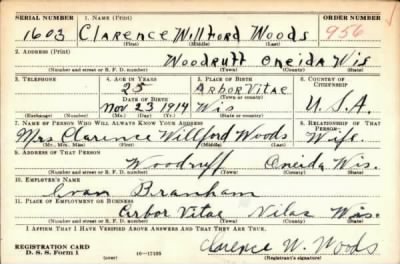 SERIAL NUMBER 1. NAME (Print) ORDER NUMBER
1603 Clarence Willford Woods 956
(First) (Middle) (Last)
2. ADDRESS (Print)
Woodruff Oneida Wis
(Number and street or R. F. D. number) (Town) (County) (State)
3. TELEPHONE 4. AGE IN YEARS 5. PLACE OF BIRTH 6. COUNTRY OF CITIZENSHIP
25 Arbor Vitae
DATE OF BIRTH (Town or county)
Nov 23 1914 Wis U.S.A.
(Exchange) (Number) (Mo.) (Day) (Yr.) (State or country)
7. NAME OF PERSON WHO WILL ALWAYS KNOW YOUR ADDRESS 8. RELATIONSHIP OF THAT PERSON
Mrs Clarence Willford Woods Wife
(Mr., Mrs., Miss) (First) (Middle) (Last)
9. ADDRESS OF THAT PERSON
Woodruff Oneida Wis.
(Number and street or R. F. D. number) (Town) (County) (State)
10. EMPLOYER'S NAME
Evan Branham
11. PLACE OF EMPLOYMENT OR BUSINESS
Arbor Vitae Vilas Wis.
(Number and street or R. F. D. number) (Town) (County) (State)
I AFFIRM THAT I HAVE VERIFIED ABOVE ANSWERS AND THAT THEY ARE TRUE.
REGISTRATION CARD Clarence W. Woods
D. S. S. Form 1 (over) 16-17105 (Registrant's signature)